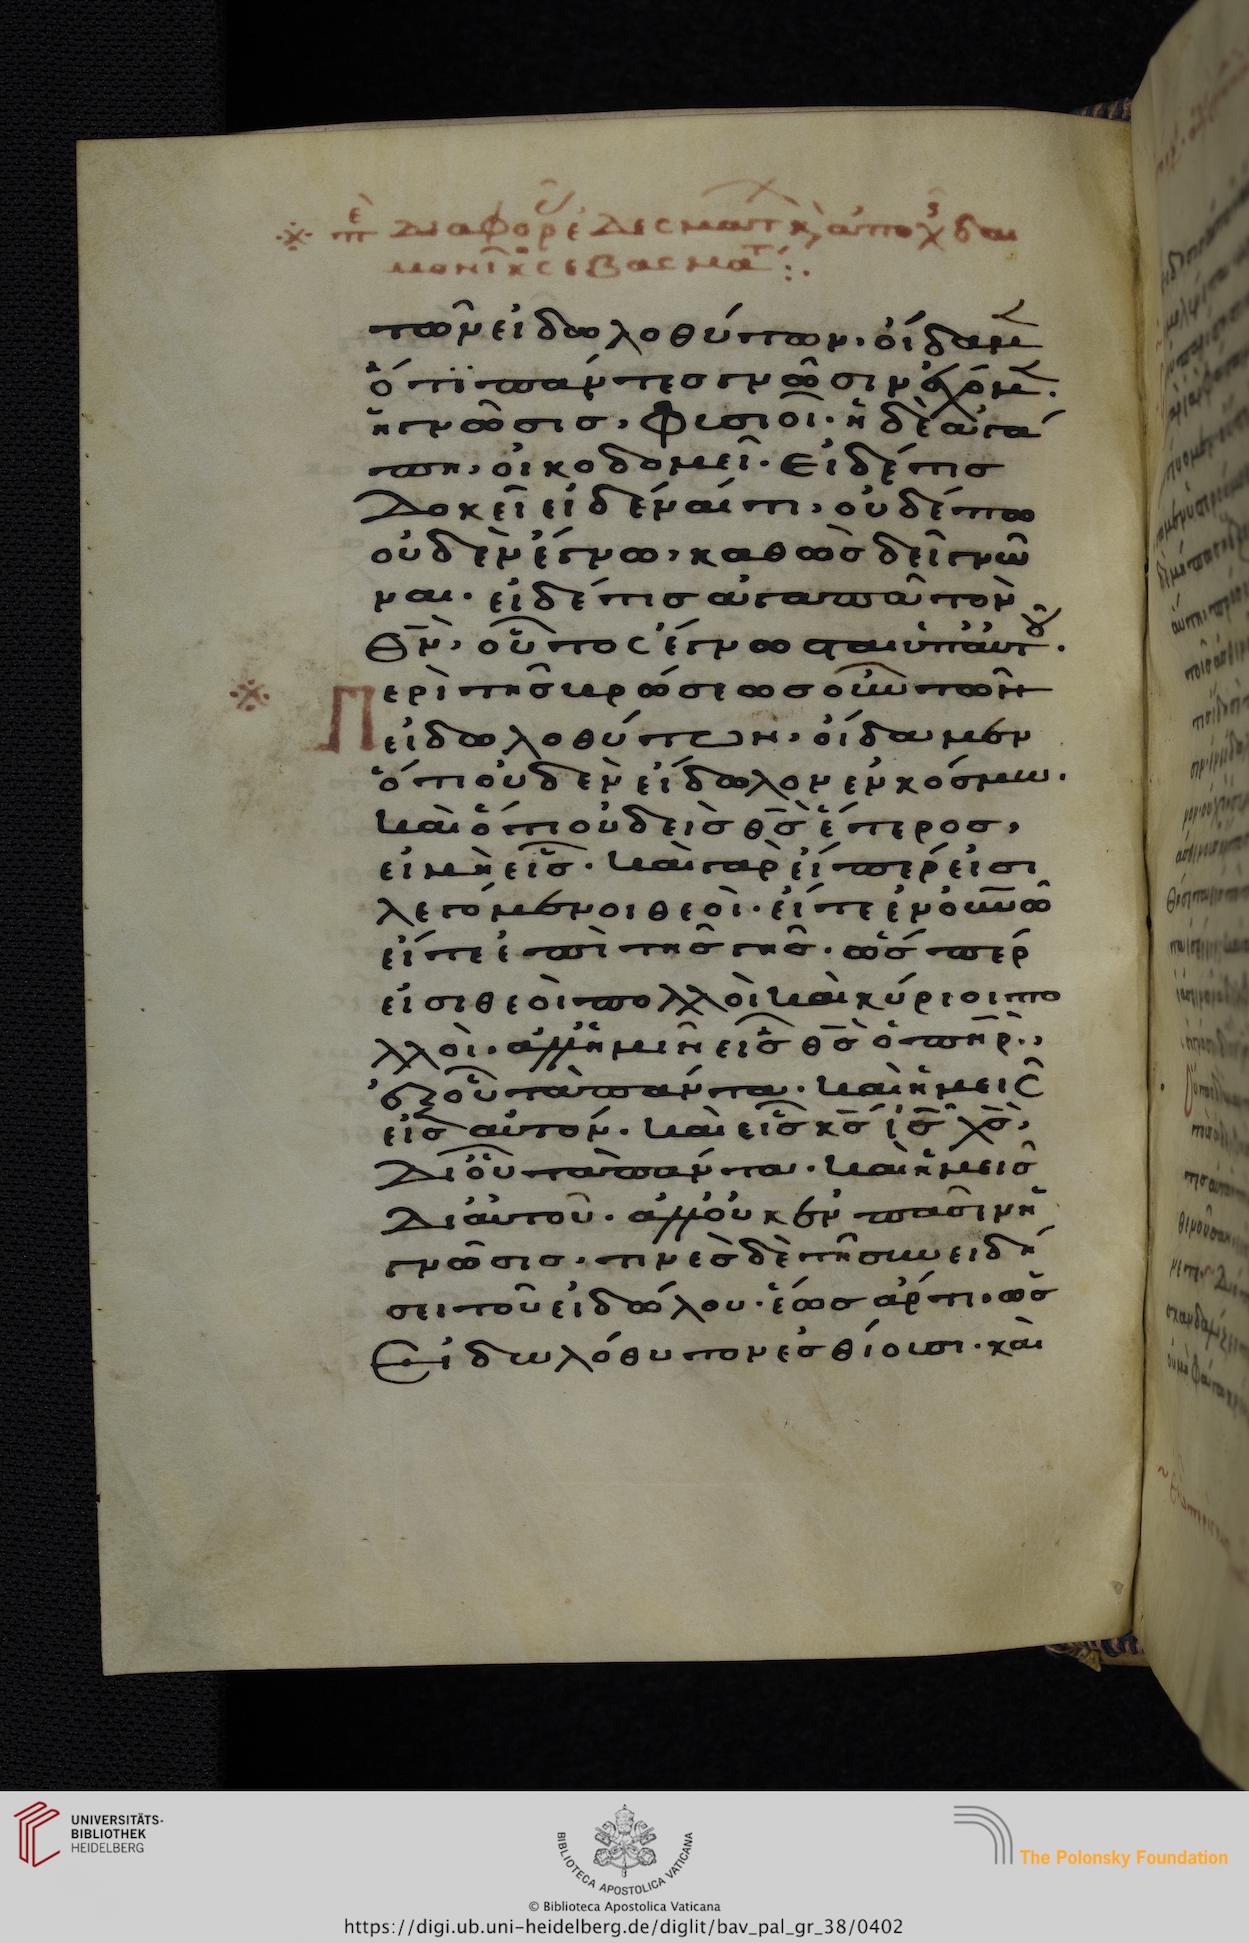 τῶν εἰδωλοθύτων. οἴδαμ
ὅτι πάντες γνῶσιν ἔχομ.
ἡ γνῶσις, φυσιοῖ. ἡ δὲ ἀγά
πη, οἰκοδομεῖ. Εἰ δέ τις
δοκεῖ εἰδέναί τι, οὐδέπω
οὐδὲν ἔγνω, καθὼς δεῖ γνῶ
ναι. εἰ δέ τις ἀγαπᾶ τὸν
θν, οὗτος ἔγνωσται ὑπ' αυτ.
Περὶ τῆς βρώσεως οὖν τῶν
εἰδωλοθύτων, οἴδαμεν
ὅτι οὐδὲν εἴδωλον ἐν κόσμω.
καὶ ὅτι οὐδεὶς θς ἕτερος,
εἰ μὴ εἷς. καὶ γὰρ εἴπερ εἰσι
λεγόμενοι θεοὶ. εἴτε ἐν ουνῶ
εἴτε ἐπὶ τῆς γῆς. ὥσπερ
εἰσι θεοὶ πολλοὶ καὶ κύριοι πο
λλοὶ. ἀλλ' ἡμῖν εἷς θς ὁ πηρ,
ἐξ οὗ τὰ πάντα. καὶ ἡμεῖς
εἰς αὐτόν. καὶ εἷς κς ις χς,
δι' οὗ τὰ πάντα. καὶ ἡμεῖς
δι' αὐτοῦ. ἀλλ' οὐκ ἐν πᾶσιν ἡ
γνῶσις. τινὲς δὲ τῆ συνειδή
σει τοῦ εἰδώλου. ἕως ἄρτι. ὡς
Εἰδωλόθυτον ἐσθίουσι. καὶ
UNIVERSITÄTS-
BIBLIOTHEK
HEIDELBERG
BIBLIOTECA APOSTOLICA VATICANA
The Polonsky Foundation
© Biblioteca Apostolica Vaticana
https://digi.ub.uni-heidelberg.de/diglit/bav_pal_gr_38/0402